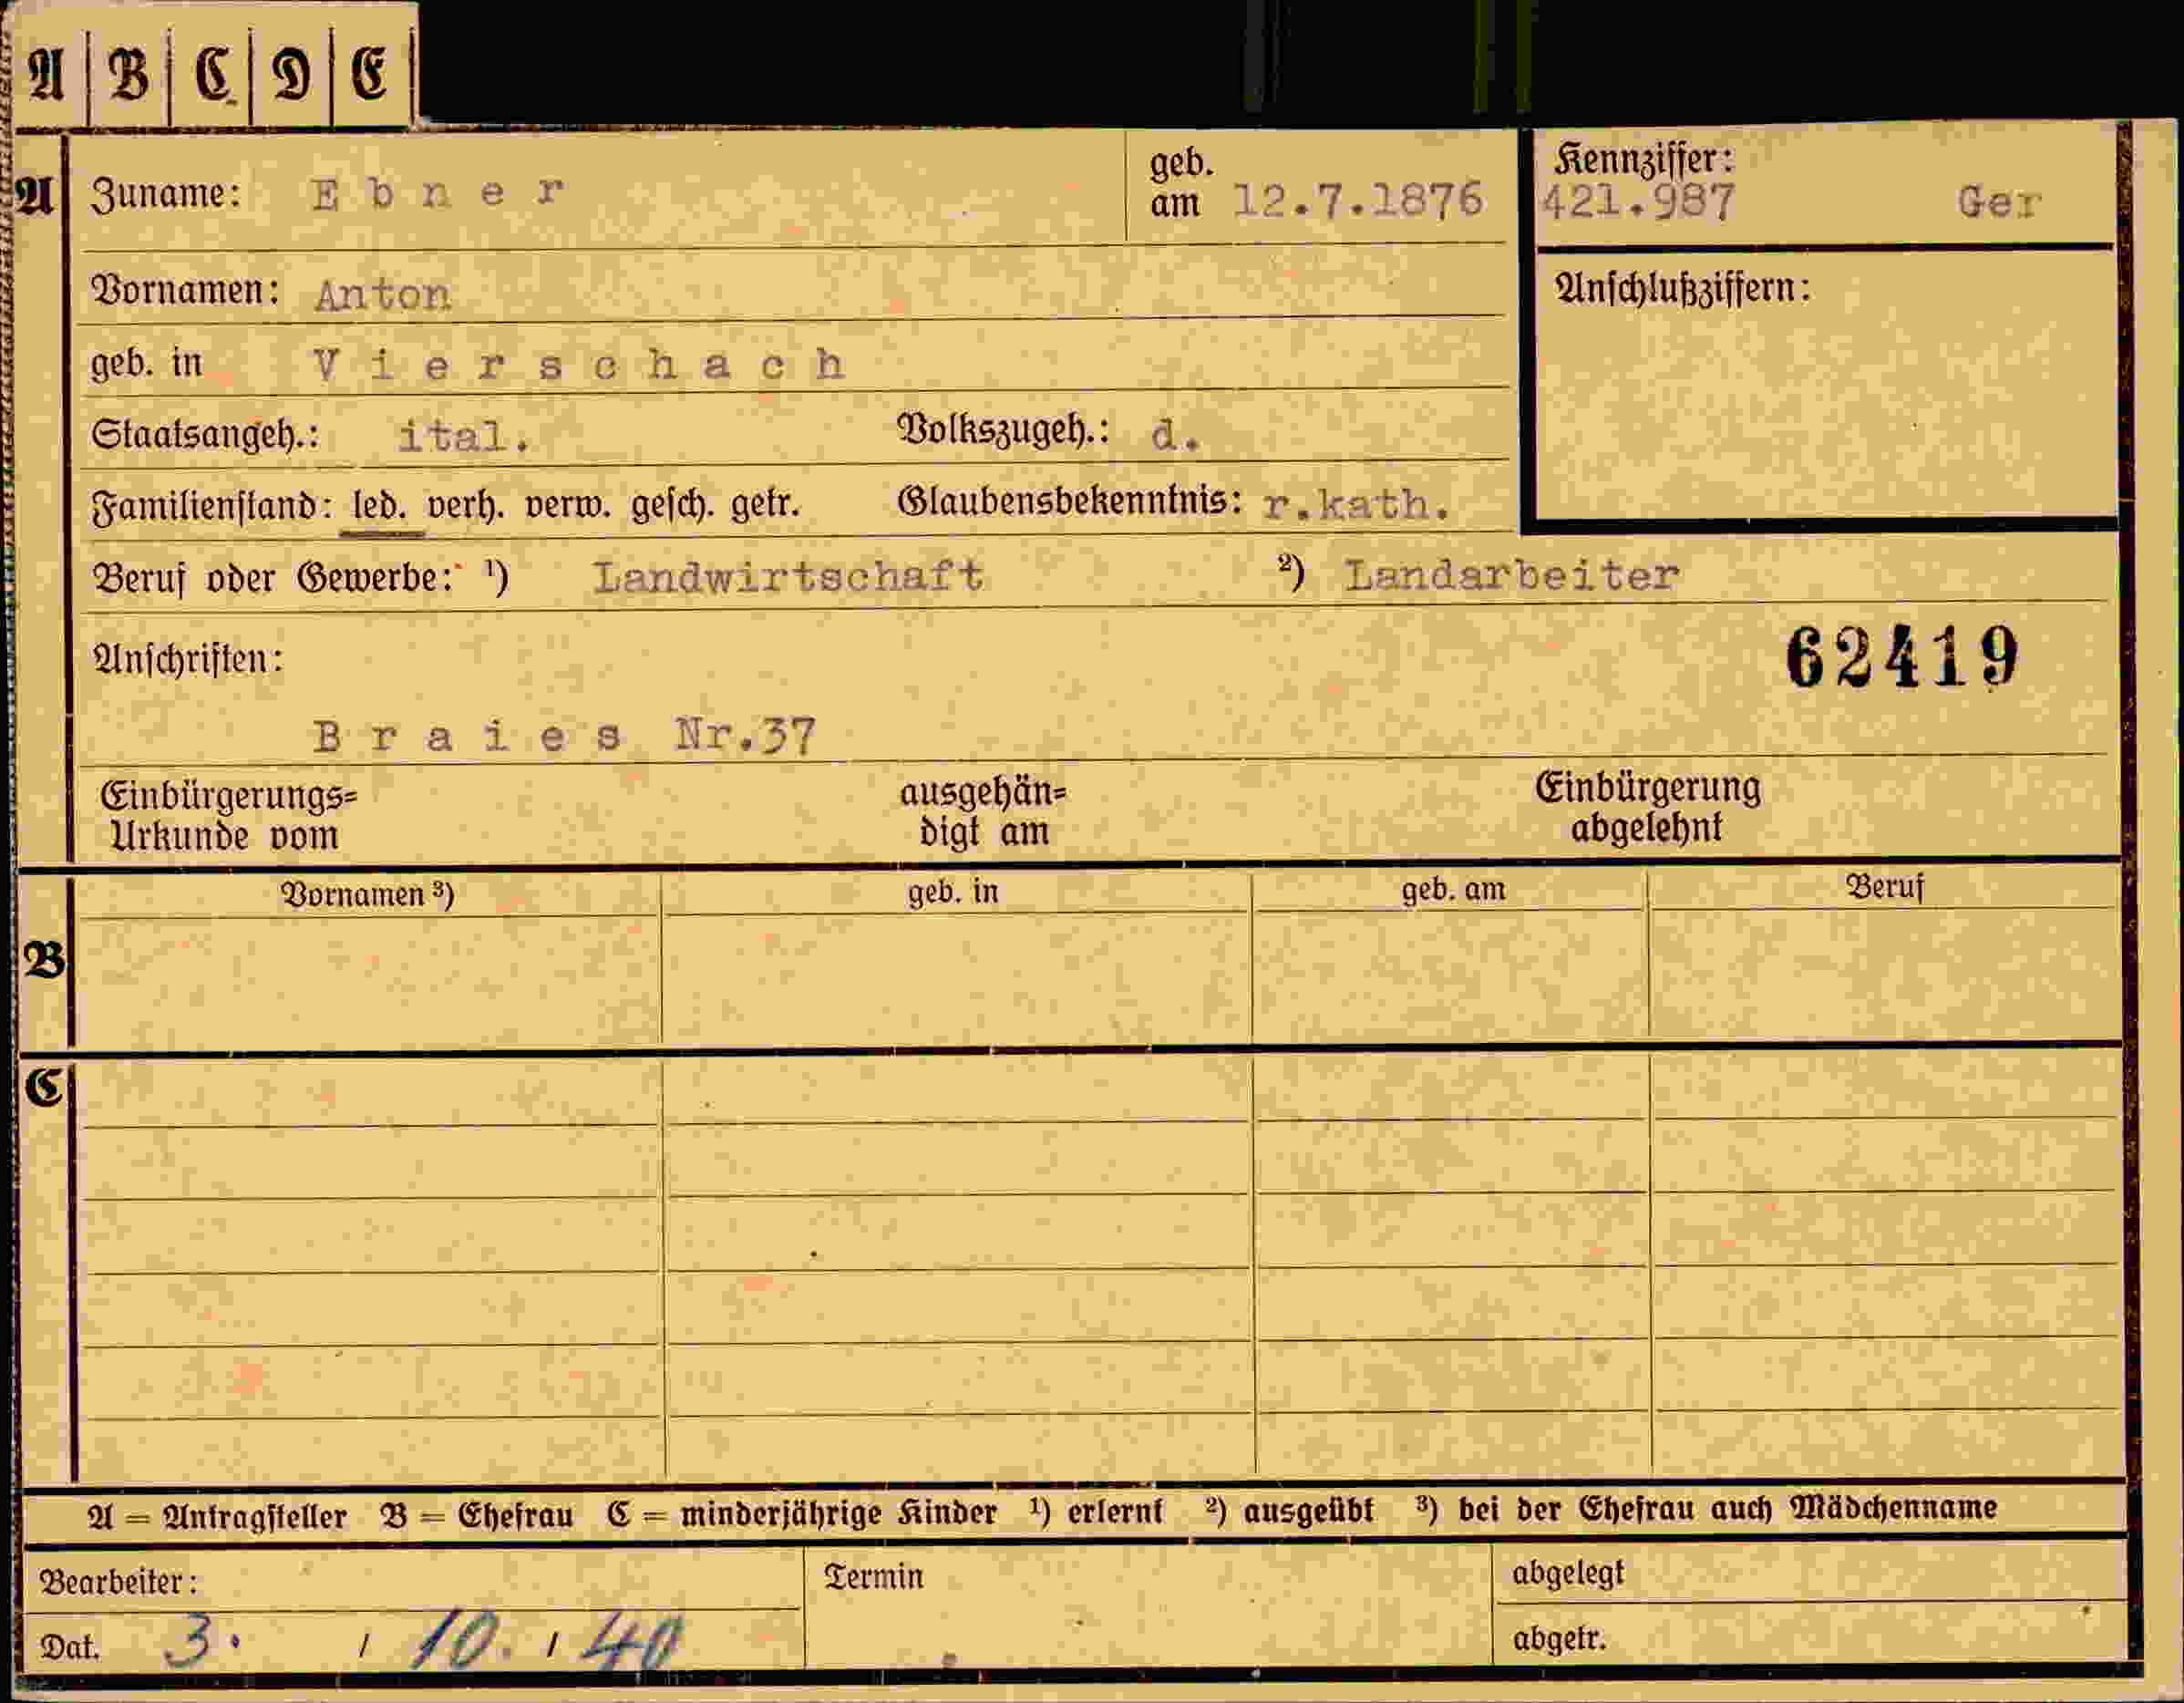 A B C D E
A Zuname: Ebner geb. am 12.7.1876 Kennziffer: 421.987 Ger
Vornamen: Anton Anschlußziffern:
geb. in Vierschach
Staatsangeh.: ital. Volkszugeh.: d.
Familienstand: led. verh. verw. gesch. getr. Glaubensbekenntnis: r.kath.
Beruf oder Gewerbe: ¹) Landwirtschaft ²) Landarbeiter
Anschriften: 62419
Braies Nr.37
Einbürgerungs= ausgehän= Einbürgerung
Urkunde vom digt am abgelehnt
Vornamen ³) geb. in geb. am Beruf
B
C
A = Antragsteller B = Ehefrau C = minderjährige Kinder ¹) erlernt ²) ausgeübt ³) bei der Ehefrau auch Mädchenname
Bearbeiter: Termin abgelegt
Dat. 3. / 10. / 40 abgetr.